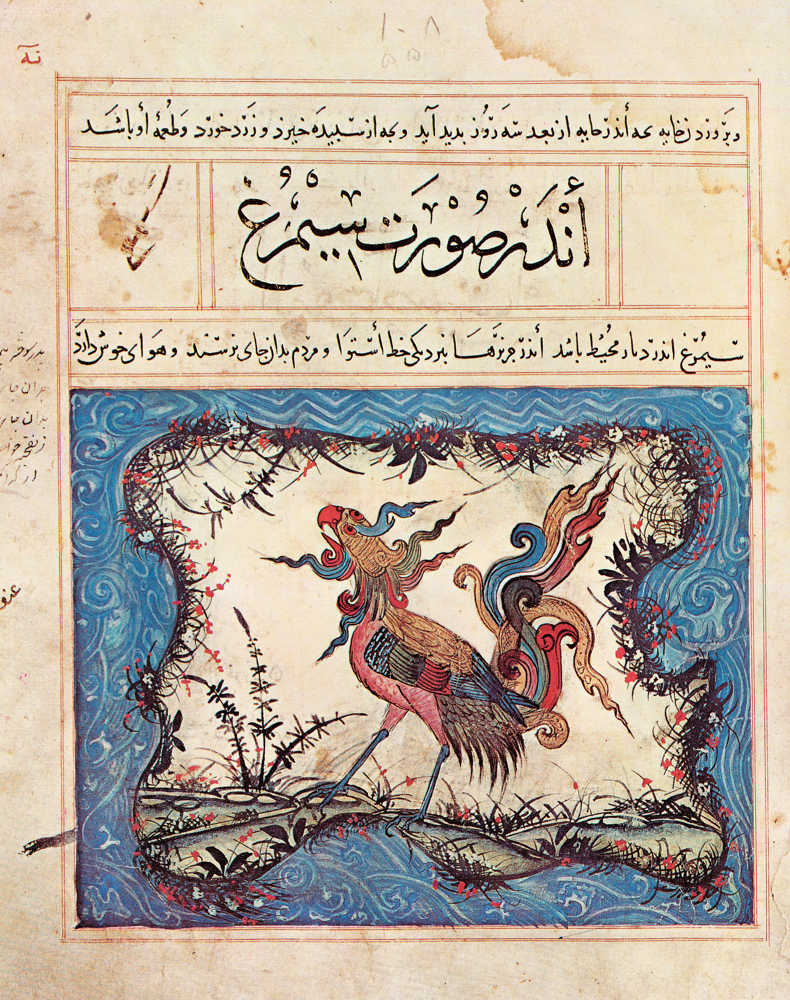 ١٠٨
نه
خایه بجه أندر خایه از بعد سَه رُوز بدید آید و بجه از سبیدَه خیزد و زَرد خورد و طُعمهٔ أو باشَد
أنْدَرْ صُوْرَت سِیْمُرغُ
سیمُرّغ اندر محیُط باشد أندر جزیرّهَا بنزدیکی خط أستوَا و مردم بدان جای نرسند و هوَای خوش دارَد